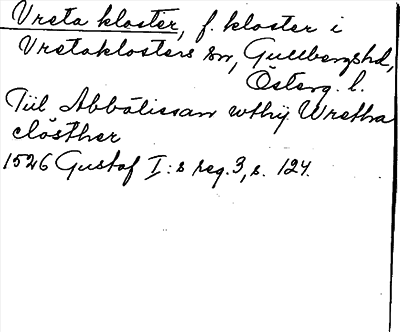 Vreta kloster, f. kloster i
Vretaklosters sn, Gullbergshd,
Österg. l.
Tiil Abbatissan wthij Wretha
closther
1526 Gustof I:s reg. 3, s. 124.